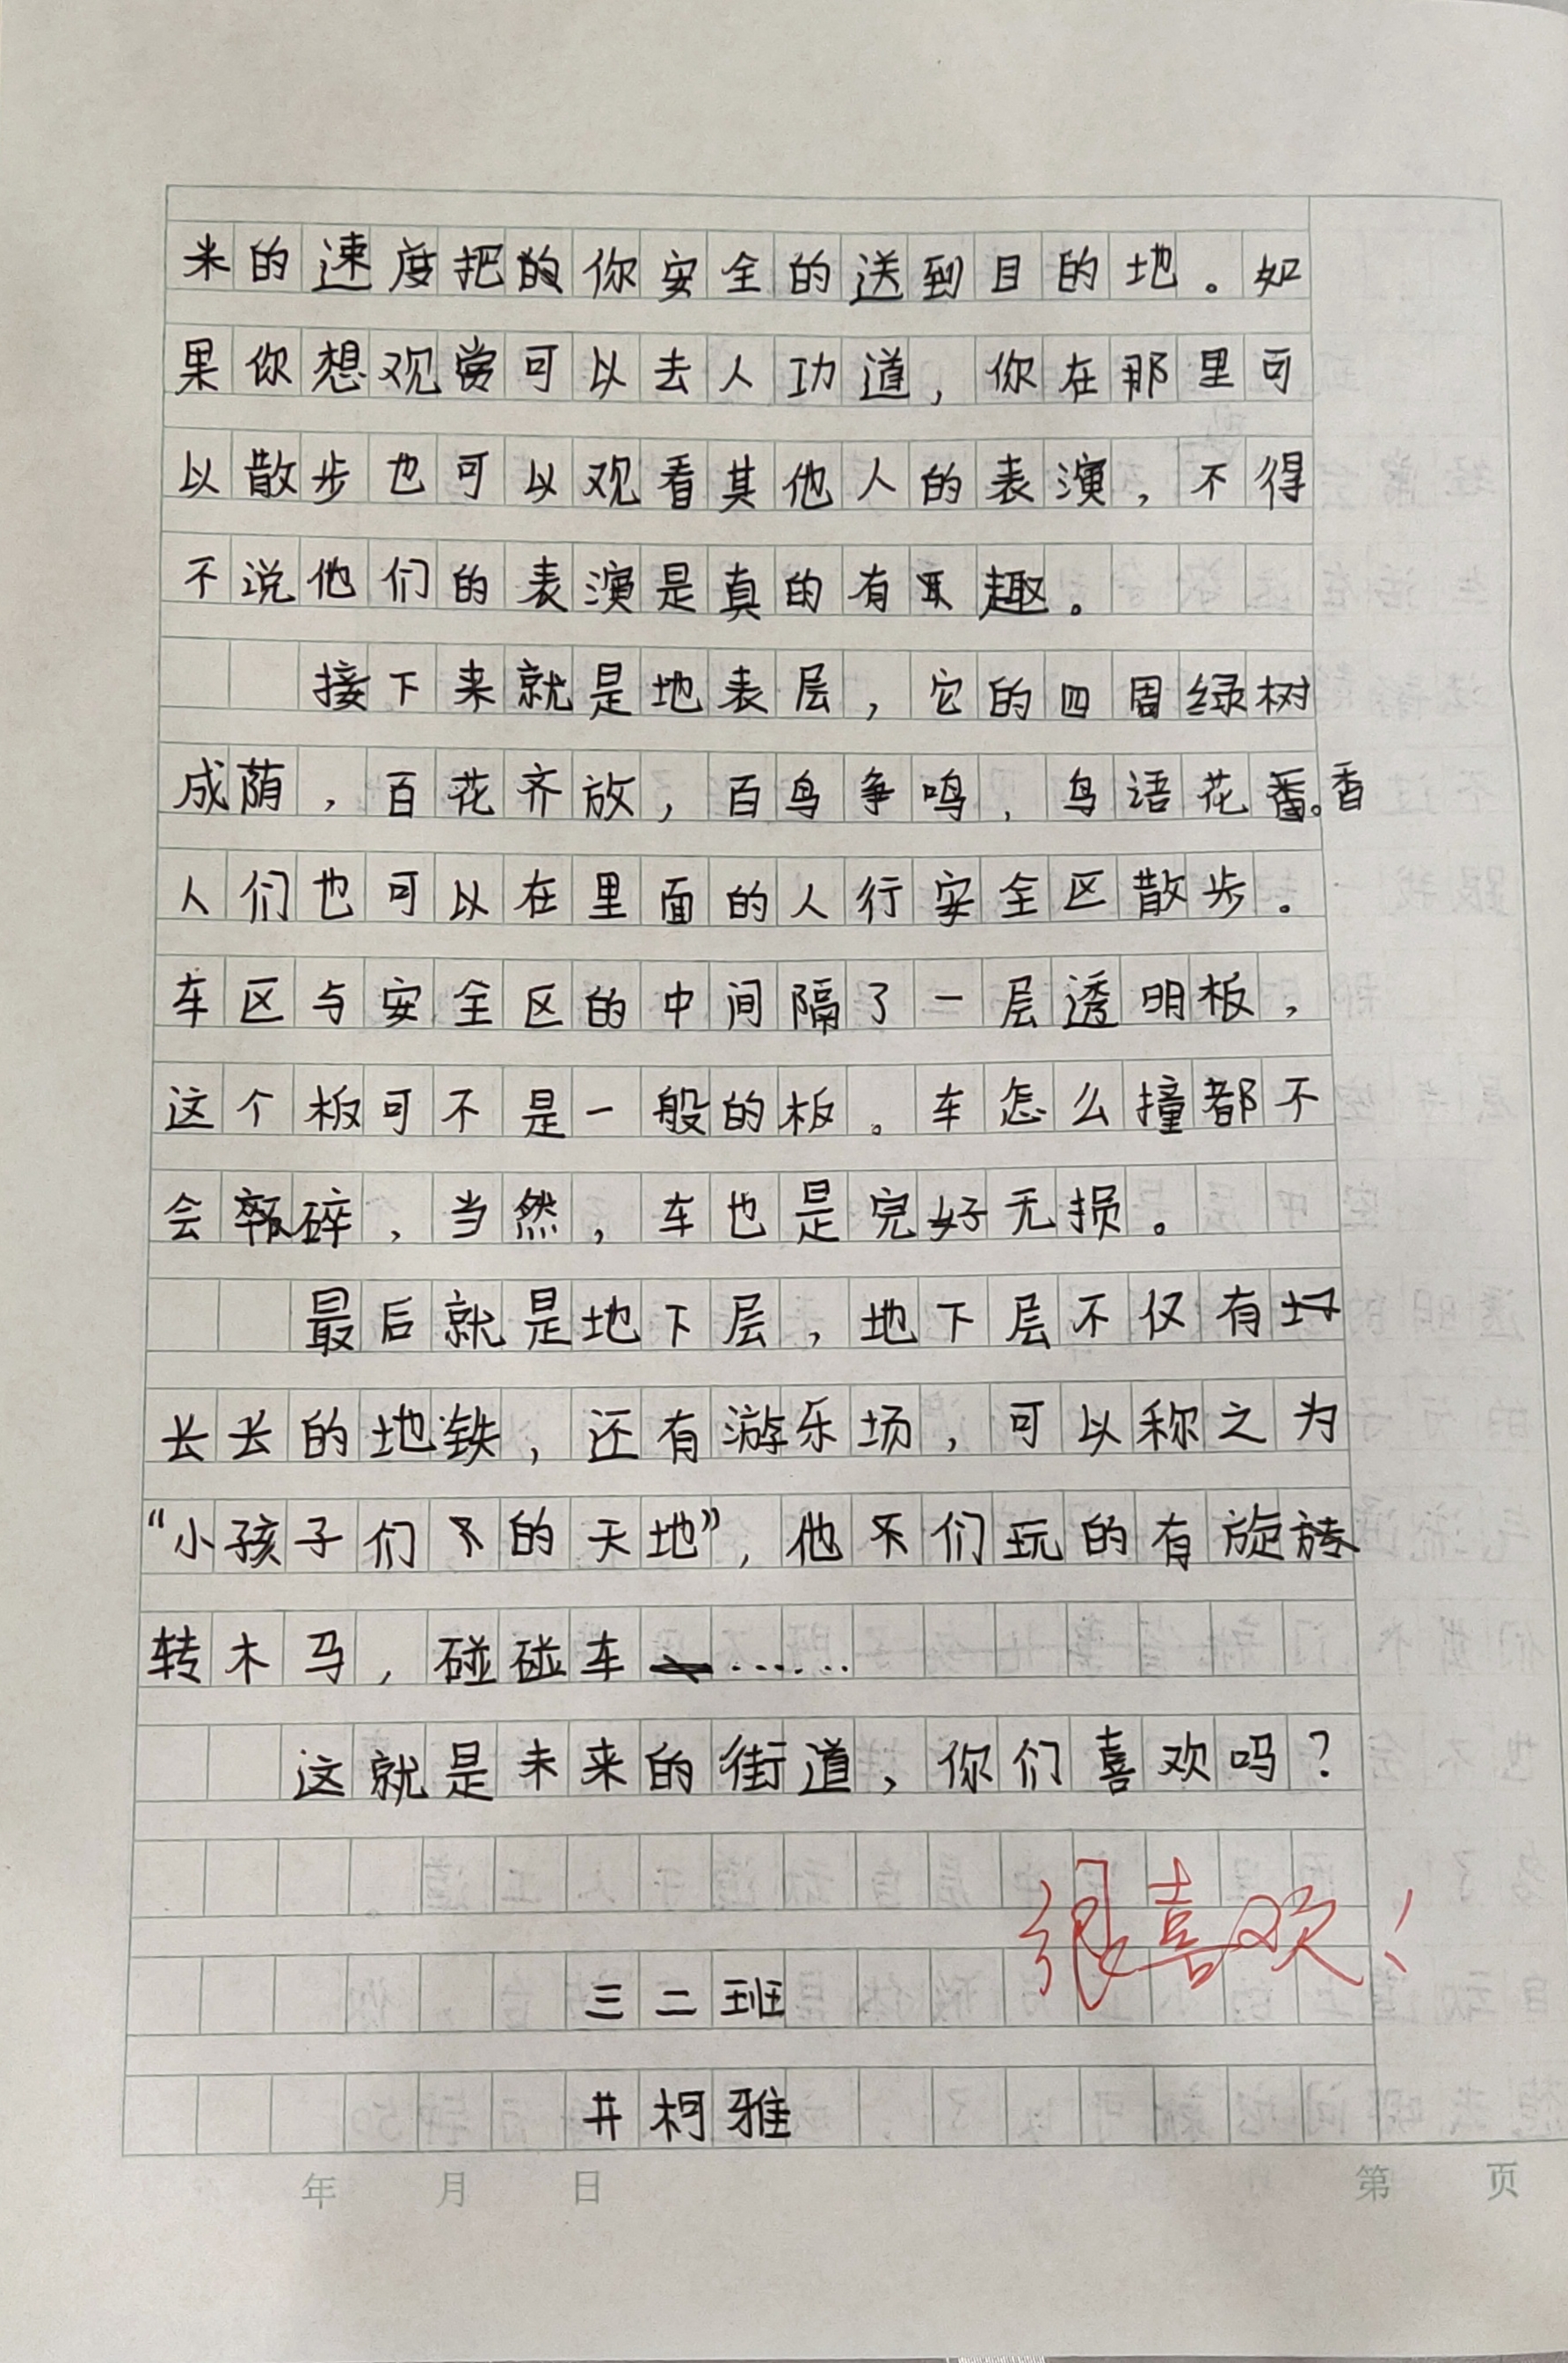 米的速度把你安全的送到目的地。如
果你想观赏可以去人功道，你在那里可
以散步也可以观看其他人的表演，不得
不说他们的表演是真的有趣。
接下来就是地表层，它的四周绿树
成荫，百花齐放，百鸟争鸣，鸟语花香。
人们也可以在里面的人行安全区散步。
车区与安全区的中间隔了一层透明板，
这个板可不是一般的板。车怎么撞都不
会碎，当然，车也是完好无损。
最后就是地下层，地下层不仅有
长长的地铁，还有游乐场，可以称之为
“小孩子们的天地”，他们玩的有旋
转木马，碰碰车……
这就是未来的街道，你们喜欢吗？
很喜欢！
三二班
井柯雅
年 月 日 第 页